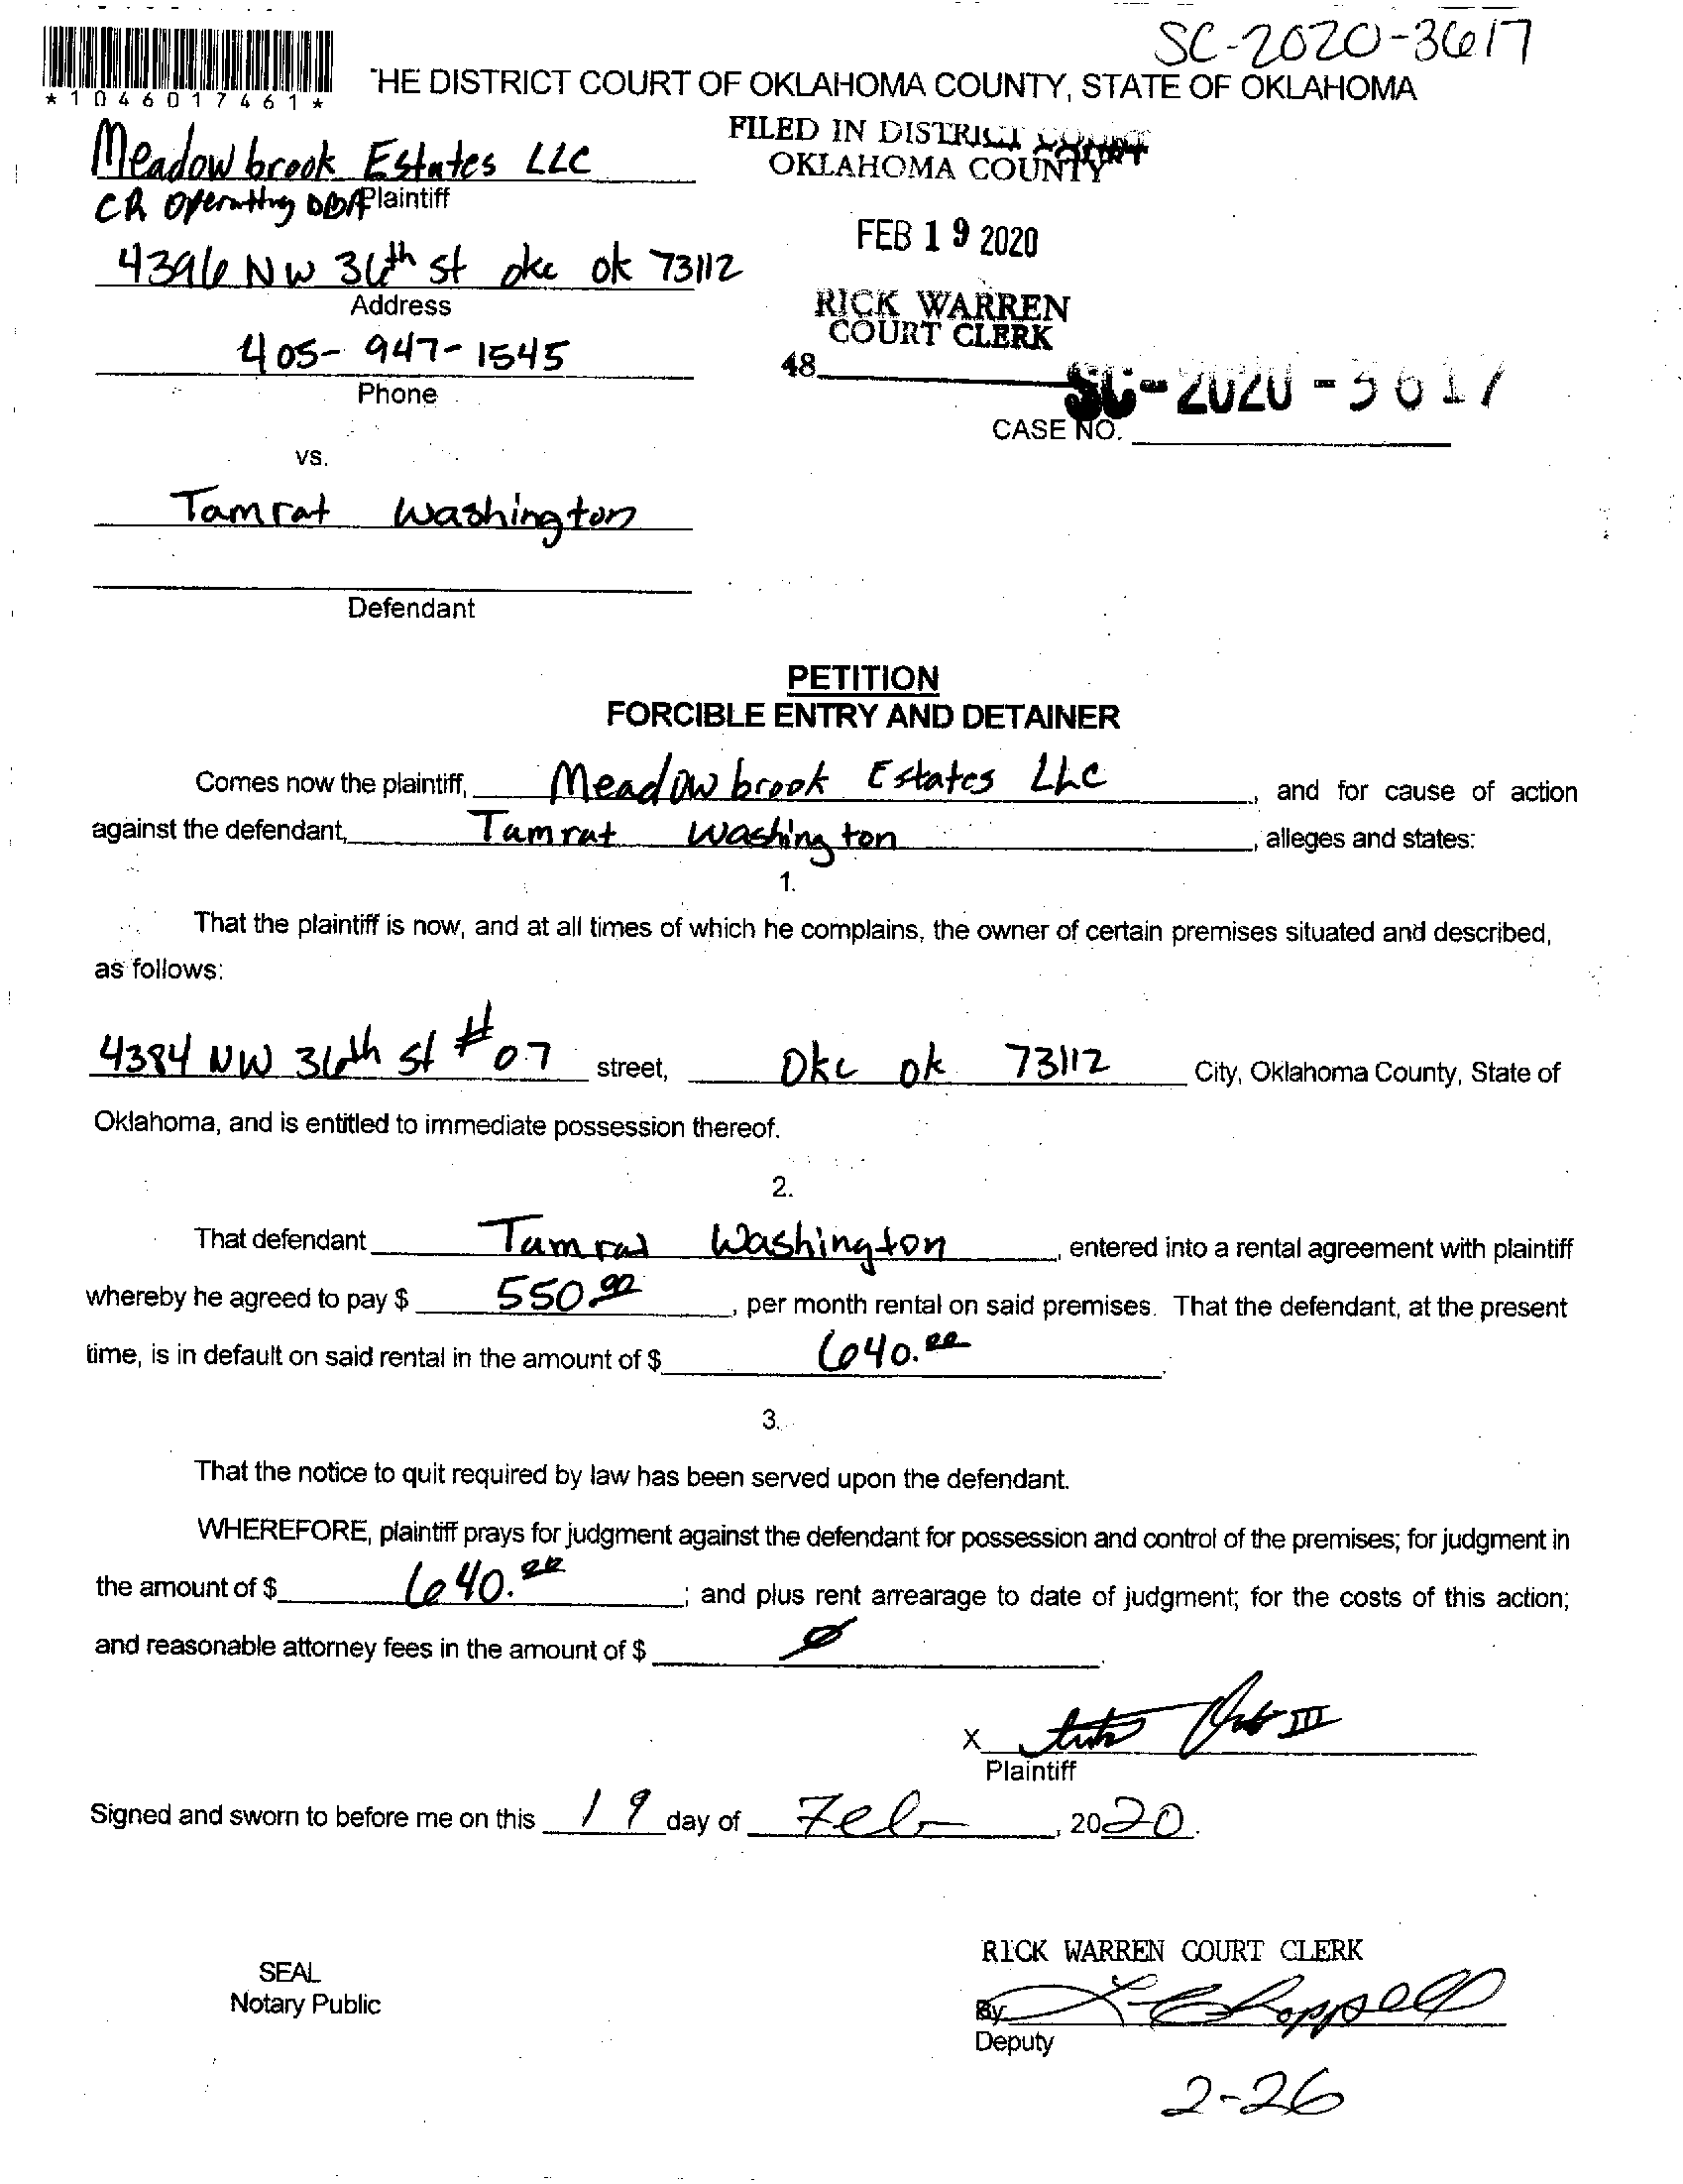 SC-2020-3617
*1046017461*
THE DISTRICT COURT OF OKLAHOMA COUNTY, STATE OF OKLAHOMA
FILED IN DISTRICT COURT
OKLAHOMA COUNTY
Meadowbrook Estates LLC
CR Operating DBA Plaintiff
FEB 19 2020
4396 NW 36th st okc ok 73112
Address
RICK WARREN
COURT CLERK
405-947-1545
48
Phone
SC-2020-3617
CASE NO.
vs.
Tamrat Washington
Defendant
PETITION
FORCIBLE ENTRY AND DETAINER
Comes now the plaintiff, Meadowbrook Estates LLC, and for cause of action
against the defendant, Tamrat Washington, alleges and states:
1.
That the plaintiff is now, and at all times of which he complains, the owner of certain premises situated and described,
as follows:
4384 NW 36th st #07 street, Okc ok 73112 City, Oklahoma County, State of
Oklahoma, and is entitled to immediate possession thereof.
2.
That defendant Tamrat Washington, entered into a rental agreement with plaintiff
whereby he agreed to pay $ 550.00, per month rental on said premises. That the defendant, at the present
time, is in default on said rental in the amount of $ 640.00.
3.
That the notice to quit required by law has been served upon the defendant.
WHEREFORE, plaintiff prays for judgment against the defendant for possession and control of the premises; for judgment in
the amount of $ 640.00; and plus rent arrearage to date of judgment; for the costs of this action;
and reasonable attorney fees in the amount of $ Ø.
X III
Plaintiff
Signed and sworn to before me on this 19 day of Feb, 2020.
RICK WARREN COURT CLERK
SEAL
Notary Public
By L Chappell
Deputy
2-26